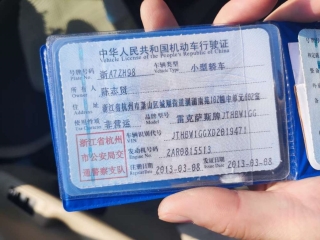 中华人民共和国机动车行驶证
Vehicle License of the People's Republic of China
号牌号码 浙A7ZH98 车辆类型 小型轿车
Plate No. Vehicle Type
所有人 陈志贤
Owner
住址 浙江省杭州市萧山区城厢街道
Address
使用性质 非营运 品牌型号 雷克萨斯牌JTHBW1GG
Use Character Model
车辆识别代号 JTHBW1GGXD2019471
VIN
浙江省杭州
市公安局交
通警察支队
发动机号码 2AR0815513
Engine No.
注册日期 2013-03-08 发证日期 2013-03-08
Register Date Issue Date